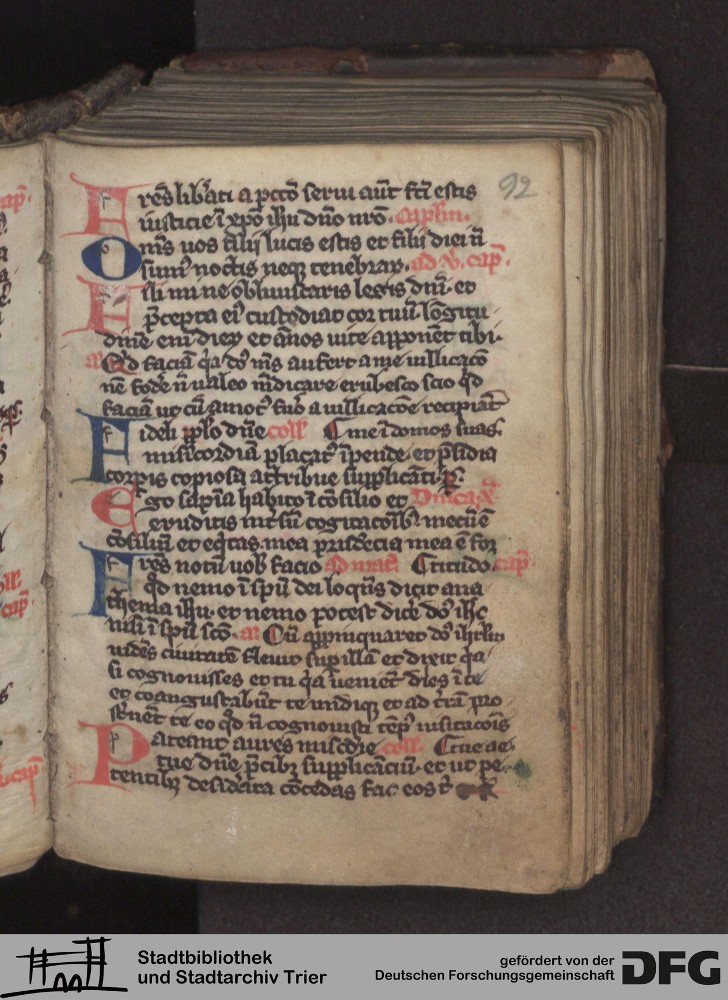 92
Fres lib'ati a pccō serui aūt fcī estis
iusticie ī xpō ihu dno nrō. capl'm.
Omīs uos filij lucis estis et filii diei nō
sum' noctis neq; tenebrar. ad v. cap.
Fili mi ne obliuiscaris legis dnī. et
p̄cepta ei' custodiat cor tuū. lōgitu
dinē enī diēr et ānos uite apponēt tibi.
a Qd faciā qa dn's m's aufert a me uillicacō
nē fode nō ualeo mēdicare erubesco scio qd
faciā ut cū amot' fuō a uillicacōe recipiāt
Fideli pplo dne coll' me ī domos suas.
misericordia placat' īpende. et p̄sidia
corpis copiosa attribue supplicāti. P.
Ego sapīa habito ī cōsilio et Dnica x
eruditis int'sū cogitacōib'. mecū ē
cōsiliū et eqitas. mea prudēcia mea ē for
Fres notū uob' facio ad mas titudo. cap.
qd nemo ī spū dei loquēs dicit ana
thema ihu. et nemo potest dice dn's ihc
nisi ī spū scō. a Cū appinquaret dn's ihrlm
uidēs ciuitatē fleuit sup illā et dixit qa
si cognouisses et tu qa uenient dies ī te
et coangustabūt te undiq; et ad trā pro
st'nēt te eo qd nō cognouisti tēp' uisitacōis
Pateant aures miscdie coll' tue ae.
tue dne p̄cib; supplicāciū. et ut pe
tentib; desid'ata cōcedas fac eos t'
Stadtbibliothek
und Stadtarchiv Trier
gefördert von der
Deutschen Forschungsgemeinschaft
DFG